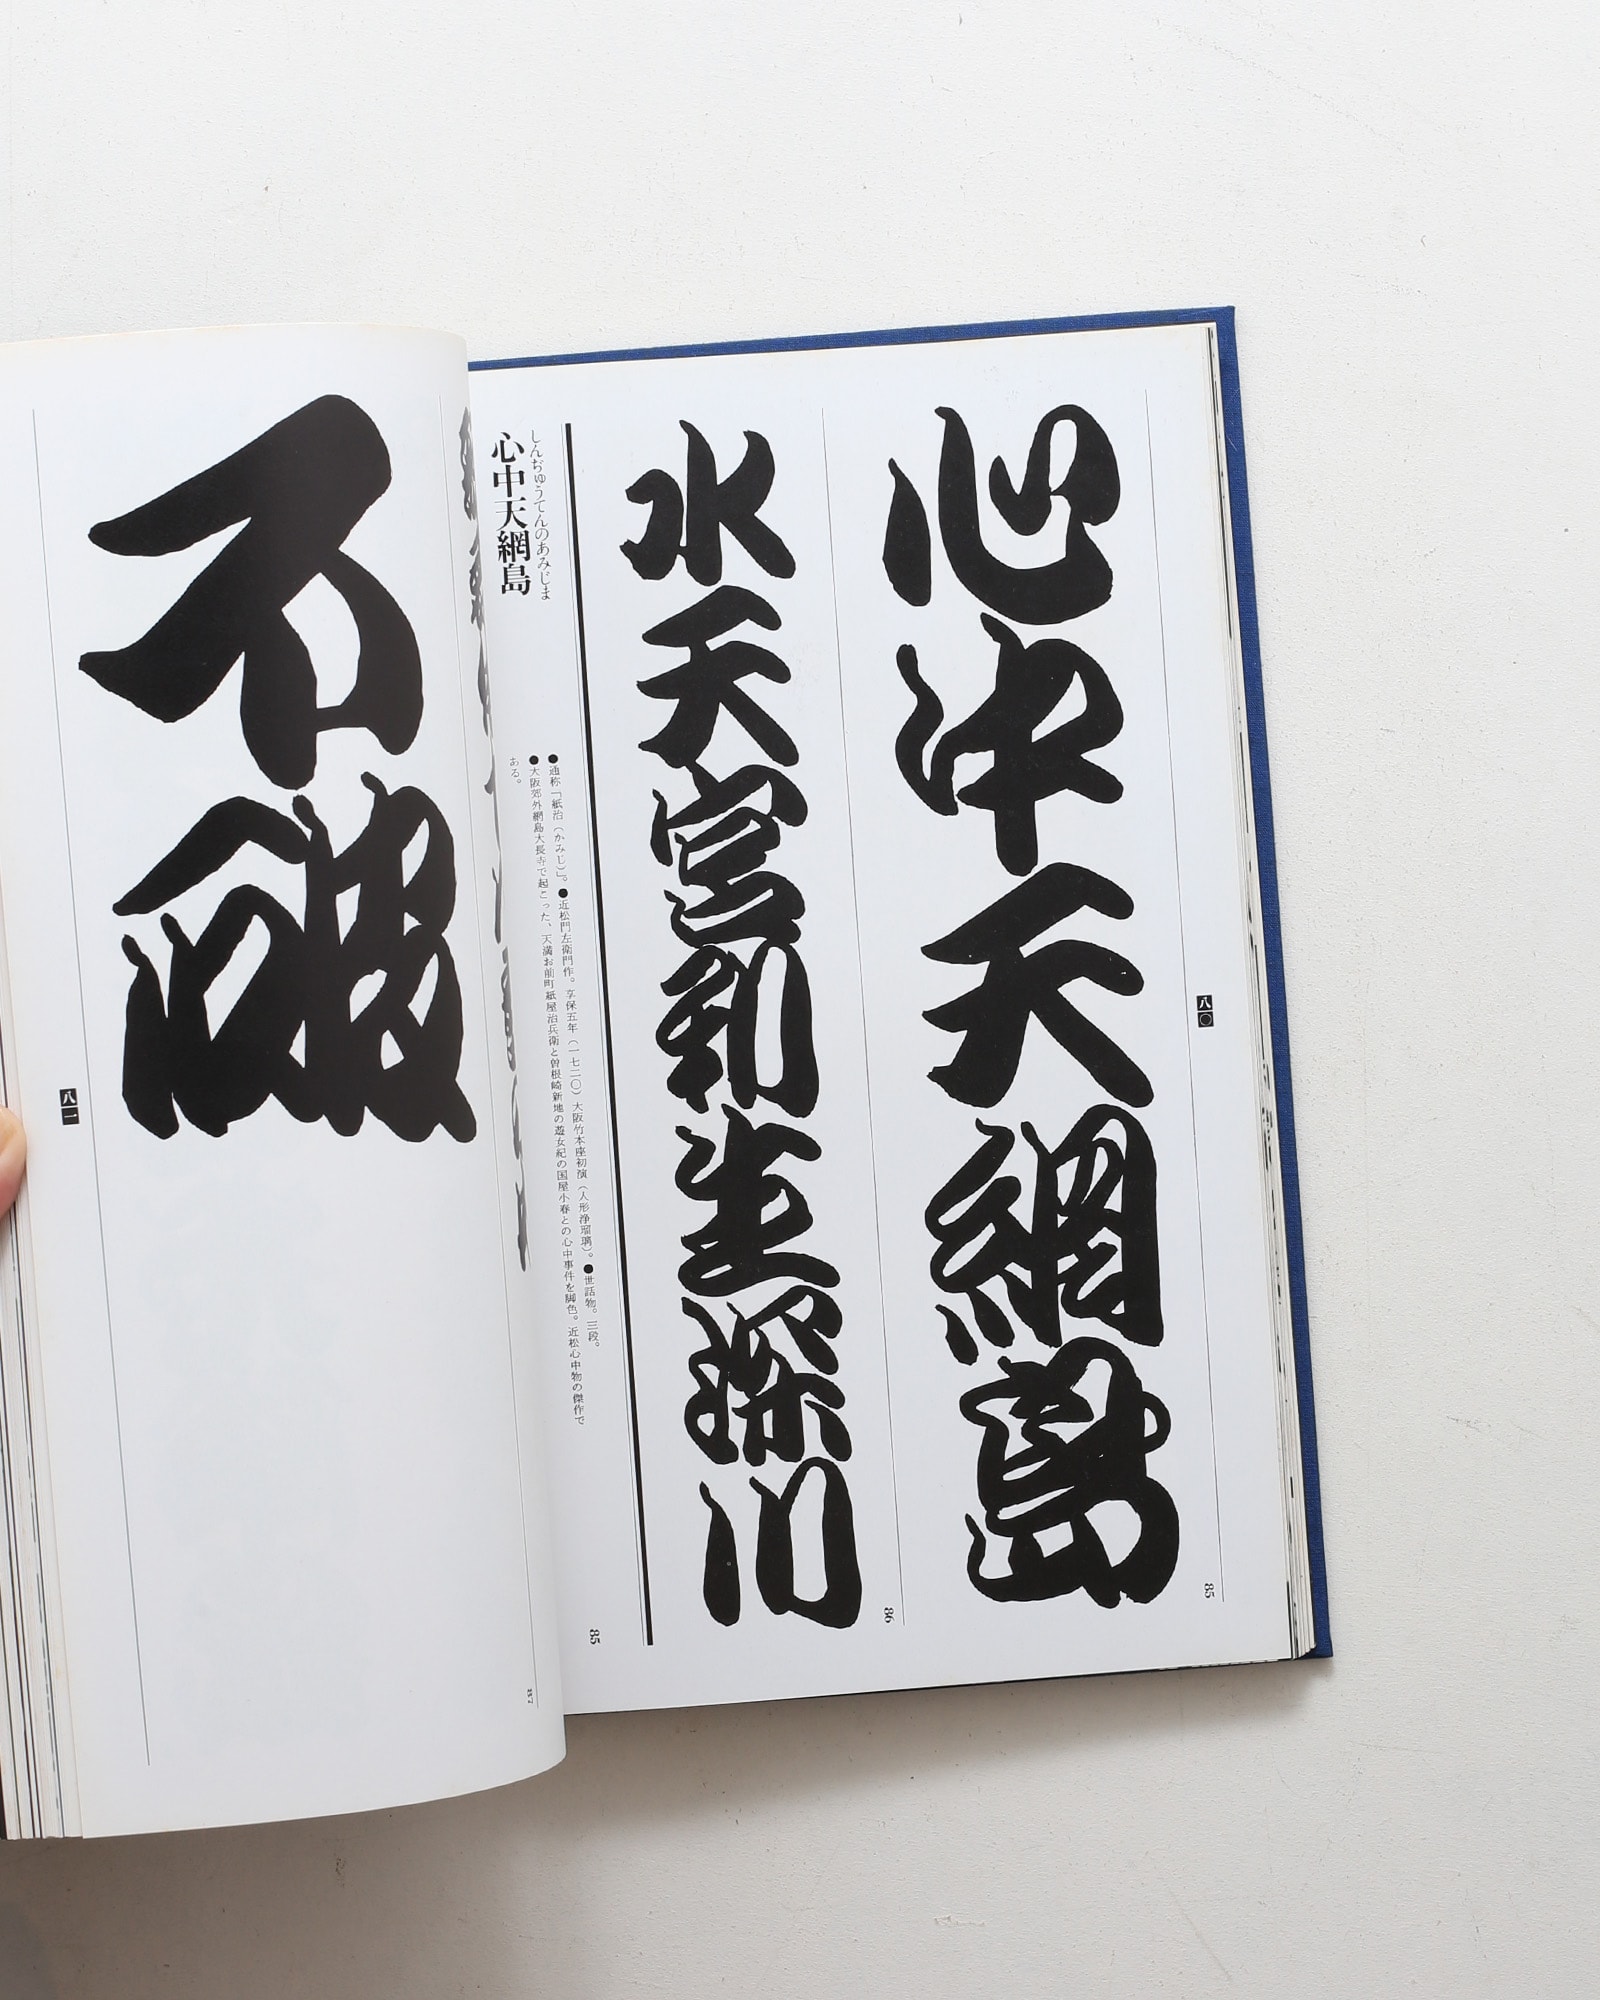 心中天網島
85
八〇
水天宮利生深川
86
85
しんぢゅうてんのあみじま
心中天網島
●通称「紙治（かみじ）」。●近松門左衛門作。享保五年（一七二〇）大阪竹本座初演（人形浄瑠璃）。●世話物。三段。
●大阪郊外網島大長寺で起こった、天満お前町紙屋治兵衛と曽根崎新地の遊女紀の国屋小春との心中事件を脚色。近松心中物の傑作で
ある。
不破
87
八一